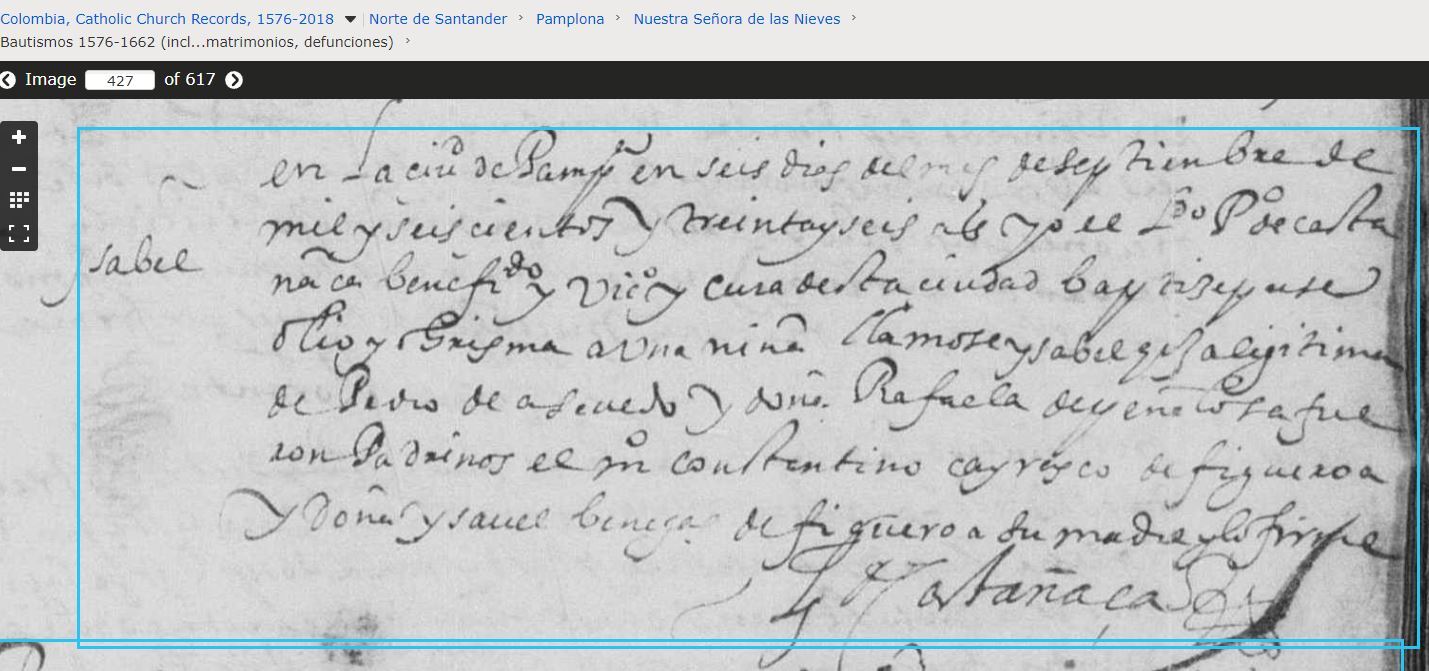 Colombia, Catholic Church Records, 1576-2018 Norte de Santander Pamplona Nuestra Señora de las Nieves
Bautismos 1576-1662 (incl...matrimonios, defunciones)
Image 427 of 617
en La ciud de Pampa en seis dias del mes de septienbre de
mil y seiscientos y treinta y seis as yo el Ldo Po de casta
ñaca benefido y Vico y cura desta ciudad baptise y puse
olio y Chrisma a una niña llamose ysabel hija ligitima
de Pedro de asevedo y doña Rafaela de
fue
ysabel
ron Padrinos el mo constantino cayrasco de figueroa
y doña ysavel benegas de figueroa su madre y lo firme
Castañaca